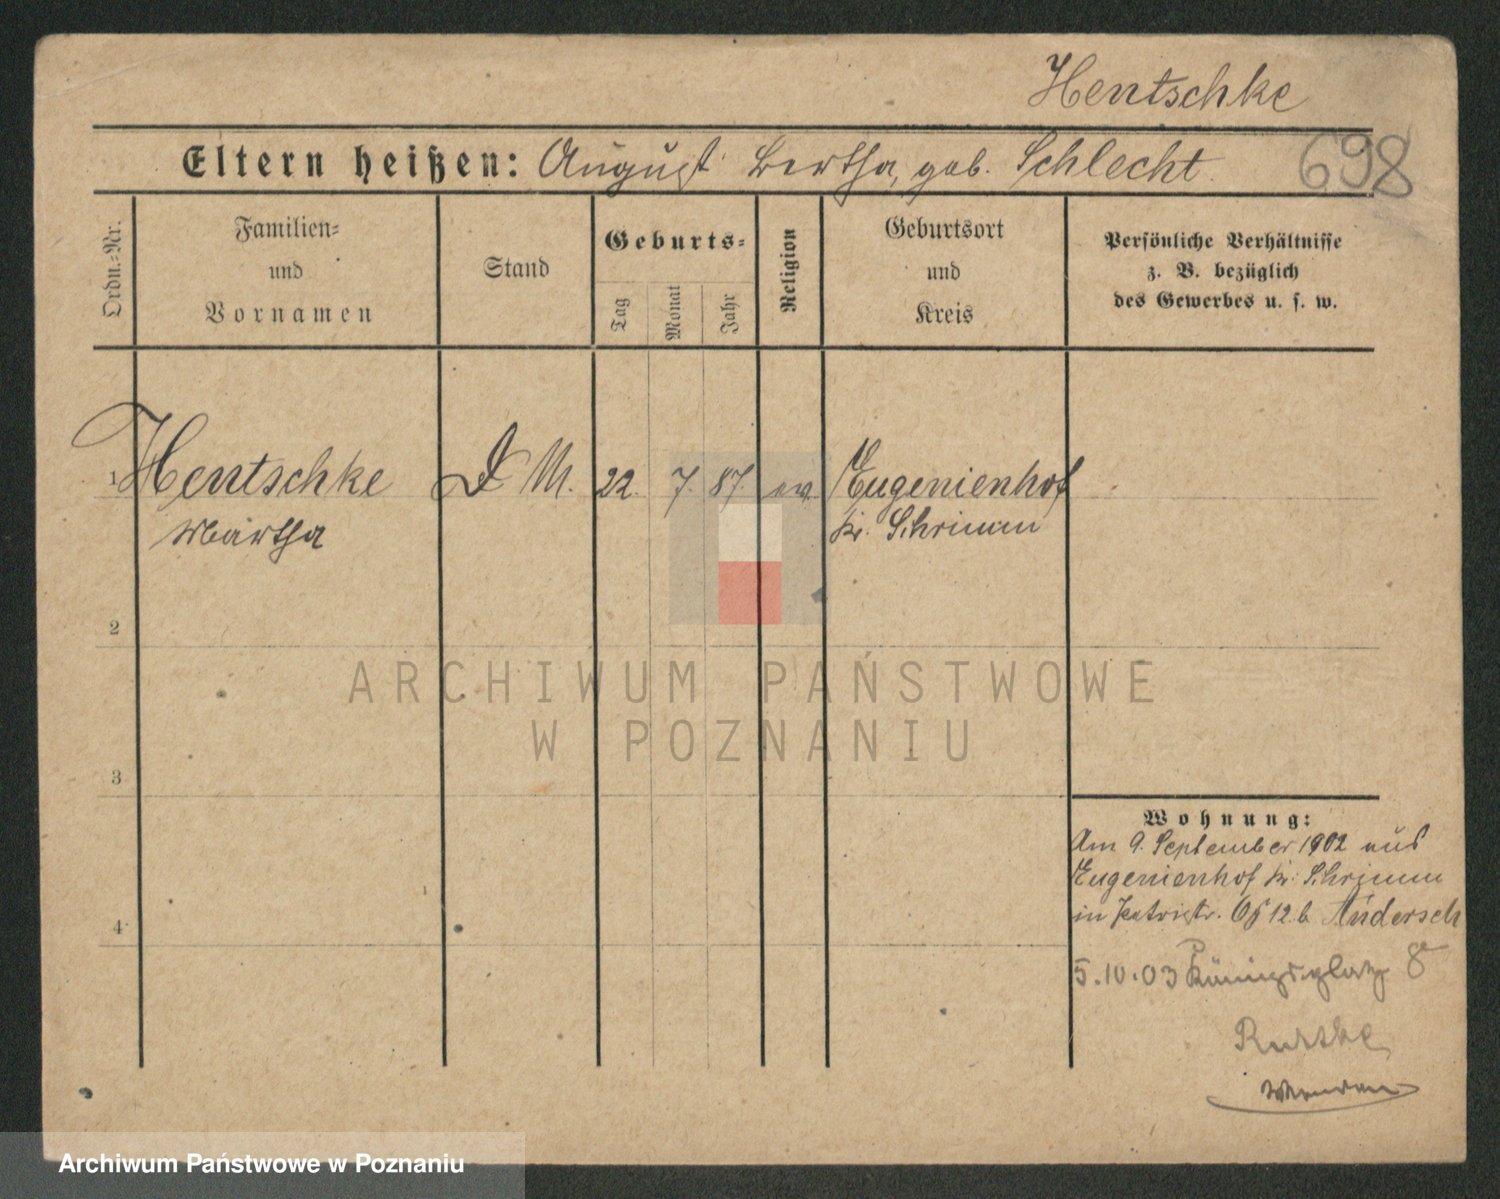 Hentschke
Eltern heißen: August Bertha, geb. Schlecht
698
Ordn.-Nr.
Familien-
und
Vornamen
Stand
Geburts-
Tag
Monat
Jahr
Religion
Geburtsort
und
Kreis
Persönliche Verhältnisse
z. B. bezüglich
des Gewerbes u. s. w.
1 Hentschke D. M. 22. 7. 87. ev. Eugenienhof
Martha Kr. Schrimm
2
ARCHIWUM PAŃSTWOWE
W POZNANIU
3
Wohnung:
Am 9. September 1902 aus
Eugenienhof Kr. Schrimm
in 12 b. Andersch
4
5.10.03 Königsplatz 8
Archiwum Państwowe w Poznaniu